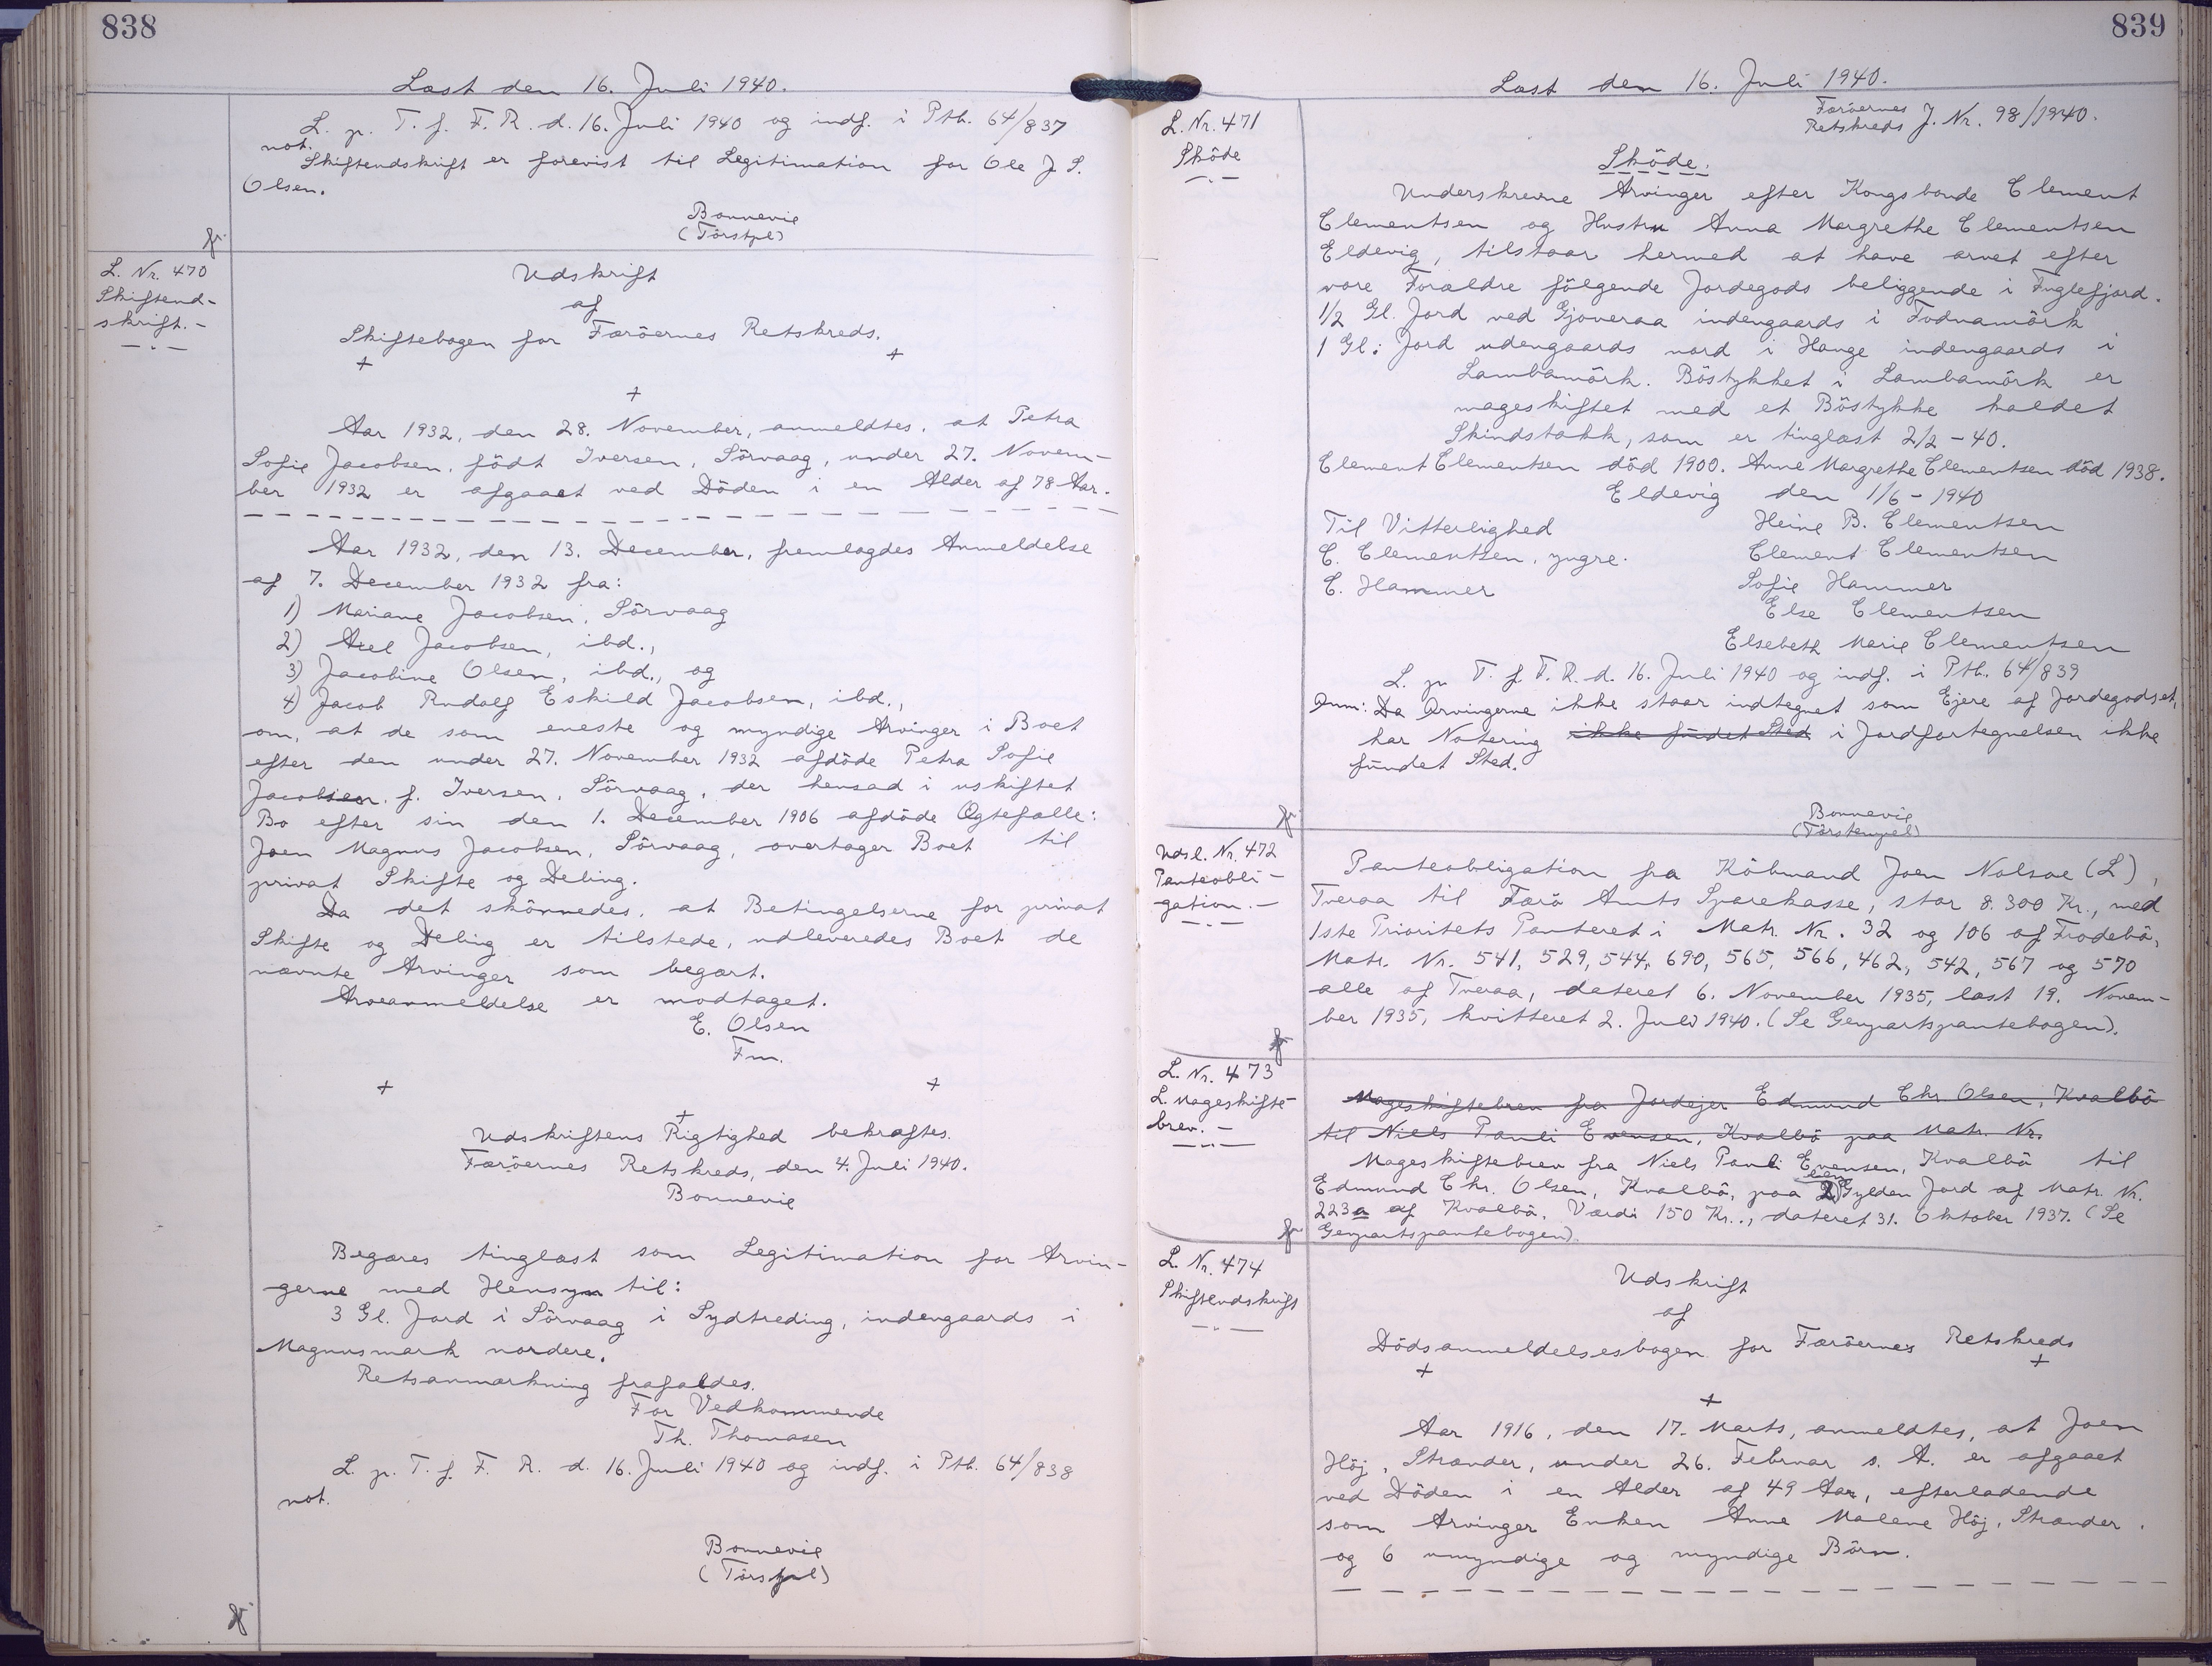 838
Læst den 16. Juli 1940.
L. p. T. f. F. R. d. 16. Juli 1940 og indf. i Ptb. 64/837
not.
Skifteudskrift er forevist til Legitimation for Ole J. S.
Olsen.
Bonnevie
(Törstpl)
L. Nr. 470
Skifteud-
skrift.-
Udskrift
af
Skiftebogen for Færöernes Retskreds.
+ +
+
Aar 1932, den 28. November, anmeldtes, at Petra
Sofie Jacobsen, födt Iversen, Sörvaag, under 27. Novem-
ber 1932 er afgaaet ved Döden i en Alder af 78 Aar.
Aar 1932, den 13. December, fremlagdes Anmeldelse
af 7. December 1932 fra:
1) Mariane Jacobsen, Sörvaag
2) Axel Jacobsen, ibd.,
3) Jacobine Olsen, ibd., og
4) Jacob Rudolf Eskild Jacobsen, ibd.,
om, at de som eneste og myndige Arvinger i Boet
efter den under 27. November 1932 afdöde Petra Sofie
Jacobsen f. Iversen, Sörvaag, der hensad i uskiftet
Bo efter sin den 1. December 1906 afdöde Ægtefælle:
Joen Magnus Jacobsen, Sörvaag, overtager Boet til
privat Skifte og Deling.
Da det skönnedes, at Betingelserne for privat
Skifte og Deling er tilstede, udleveredes Boet de
nævnte Arvinger som begært.
Arveanmeldelse er modtaget.
E. Olsen
Fm.
+ +
+
Udskriftens Rigtighed bekræftes.
Færöernes Retskreds, den 4. Juli 1940.
Bonnevie
Begæres tinglæst som Legitimation for Arvin-
gerne med Hensyn til:
3 Gl. Jord i Sörvaag i Sydtreding, indengaards i
Magnusmark nordere.
Retsanmærkning frafaldes.
For Vedkommende
Th. Thomasen
L. p. T. f. F. R. d. 16. Juli 1940 og indf. i Ptb. 64/838
not.
Bonnevie
(Törstpl)
839
Læst den 16. Juli 1940.
L. Nr. 471
Sköde
Færöernes
Retskreds J. Nr. 98/1940.
Sköde.
Underskrevne Arvinger efter Kongsbonde Clement
Clementsen og Hustru Anna Margrethe Clementsen
Eldevig, tilstaar hermed at have arvet efter
vore Forældre fölgende Jordegods beliggende i Fuglefjord.
1/2 Gl. Jord ved Gjoveraa indengaards i Todnamörk
1 Gl: Jord udengaards nord i Hauge indengaards i
Lambamörk. Böstykket i Lambamörk er
mageskiftet med et Böstykke kaldet
Skindstakk, som er tinglæst 2/2 - 40.
Clement Clementsen död 1900. Anne Margrethe Clementsen död 1938.
Eldevig den 1/6 - 1940
Til Vitterlighed Heine B. Clementsen
C. Clementsen, yngre. Clement Clementsen
C. Hammer Sofie Hammer
Else Clementsen
Elsebeth Marie Clementsen
L. p. T. f. F. R. d. 16. Juli 1940 og indf. i Ptb. 64/839
Anm: Da Arvingerne ikke staar indtegnet som Ejere af Jordegodset,
har Notering ikke fundet Sted i Jordfortegnelsen ikke
fundet Sted.
Bonnevie
(Törstempel)
Udsl. Nr. 472
Panteobli-
gation.-
Panteobligation fra Köbmand Joen Nolsøe (L),
Tveraa til Færö Amts Sparekasse, stor 8.300 Kr., med
1ste Prioritets Panteret i Matr. Nr. 32 og 106 af Frodebö,
Matr. Nr. 541, 529, 544, 690, 565, 566, 462, 542, 567 og 570
alle af Tveraa, dateret 6. November 1935, læst 19. Novem-
ber 1935, kvitteret 2. Juli 1940. (Se Genpartspantebogen).
L. Nr. 473
L. Mageskifte-
brev.-
Mageskiftebrev fra Jordejer Edmund Chr. Olsen, Kvalbö
til Niels Pauli Evensen, Kvalbö paa Matr. Nr.
Mageskiftebrev fra Niels Pauli Evensen, Kvalbö til
Edmund Chr. Olsen, Kvalbö, paa Gylden Jord af Matr. Nr.
223a af Kvalbö. Værdi 150 Kr., dateret 31. Oktober 1937. (Se
Genpartspantebogen).
L. Nr. 474
Skifteudskrift
Udskrift
af
Dödsanmeldelsesbogen for Færöernes Retskreds
+ +
+
Aar 1916, den 17. Marts, anmeldtes, at Joen
Höj, Strænder, under 26. Februar s. A. er afgaaet
ved Döden i en Alder af 49 Aar, efterladende
som Arvinger Enken Anne Malene Höj, Strænder,
og 6 umyndige og myndige Börn.